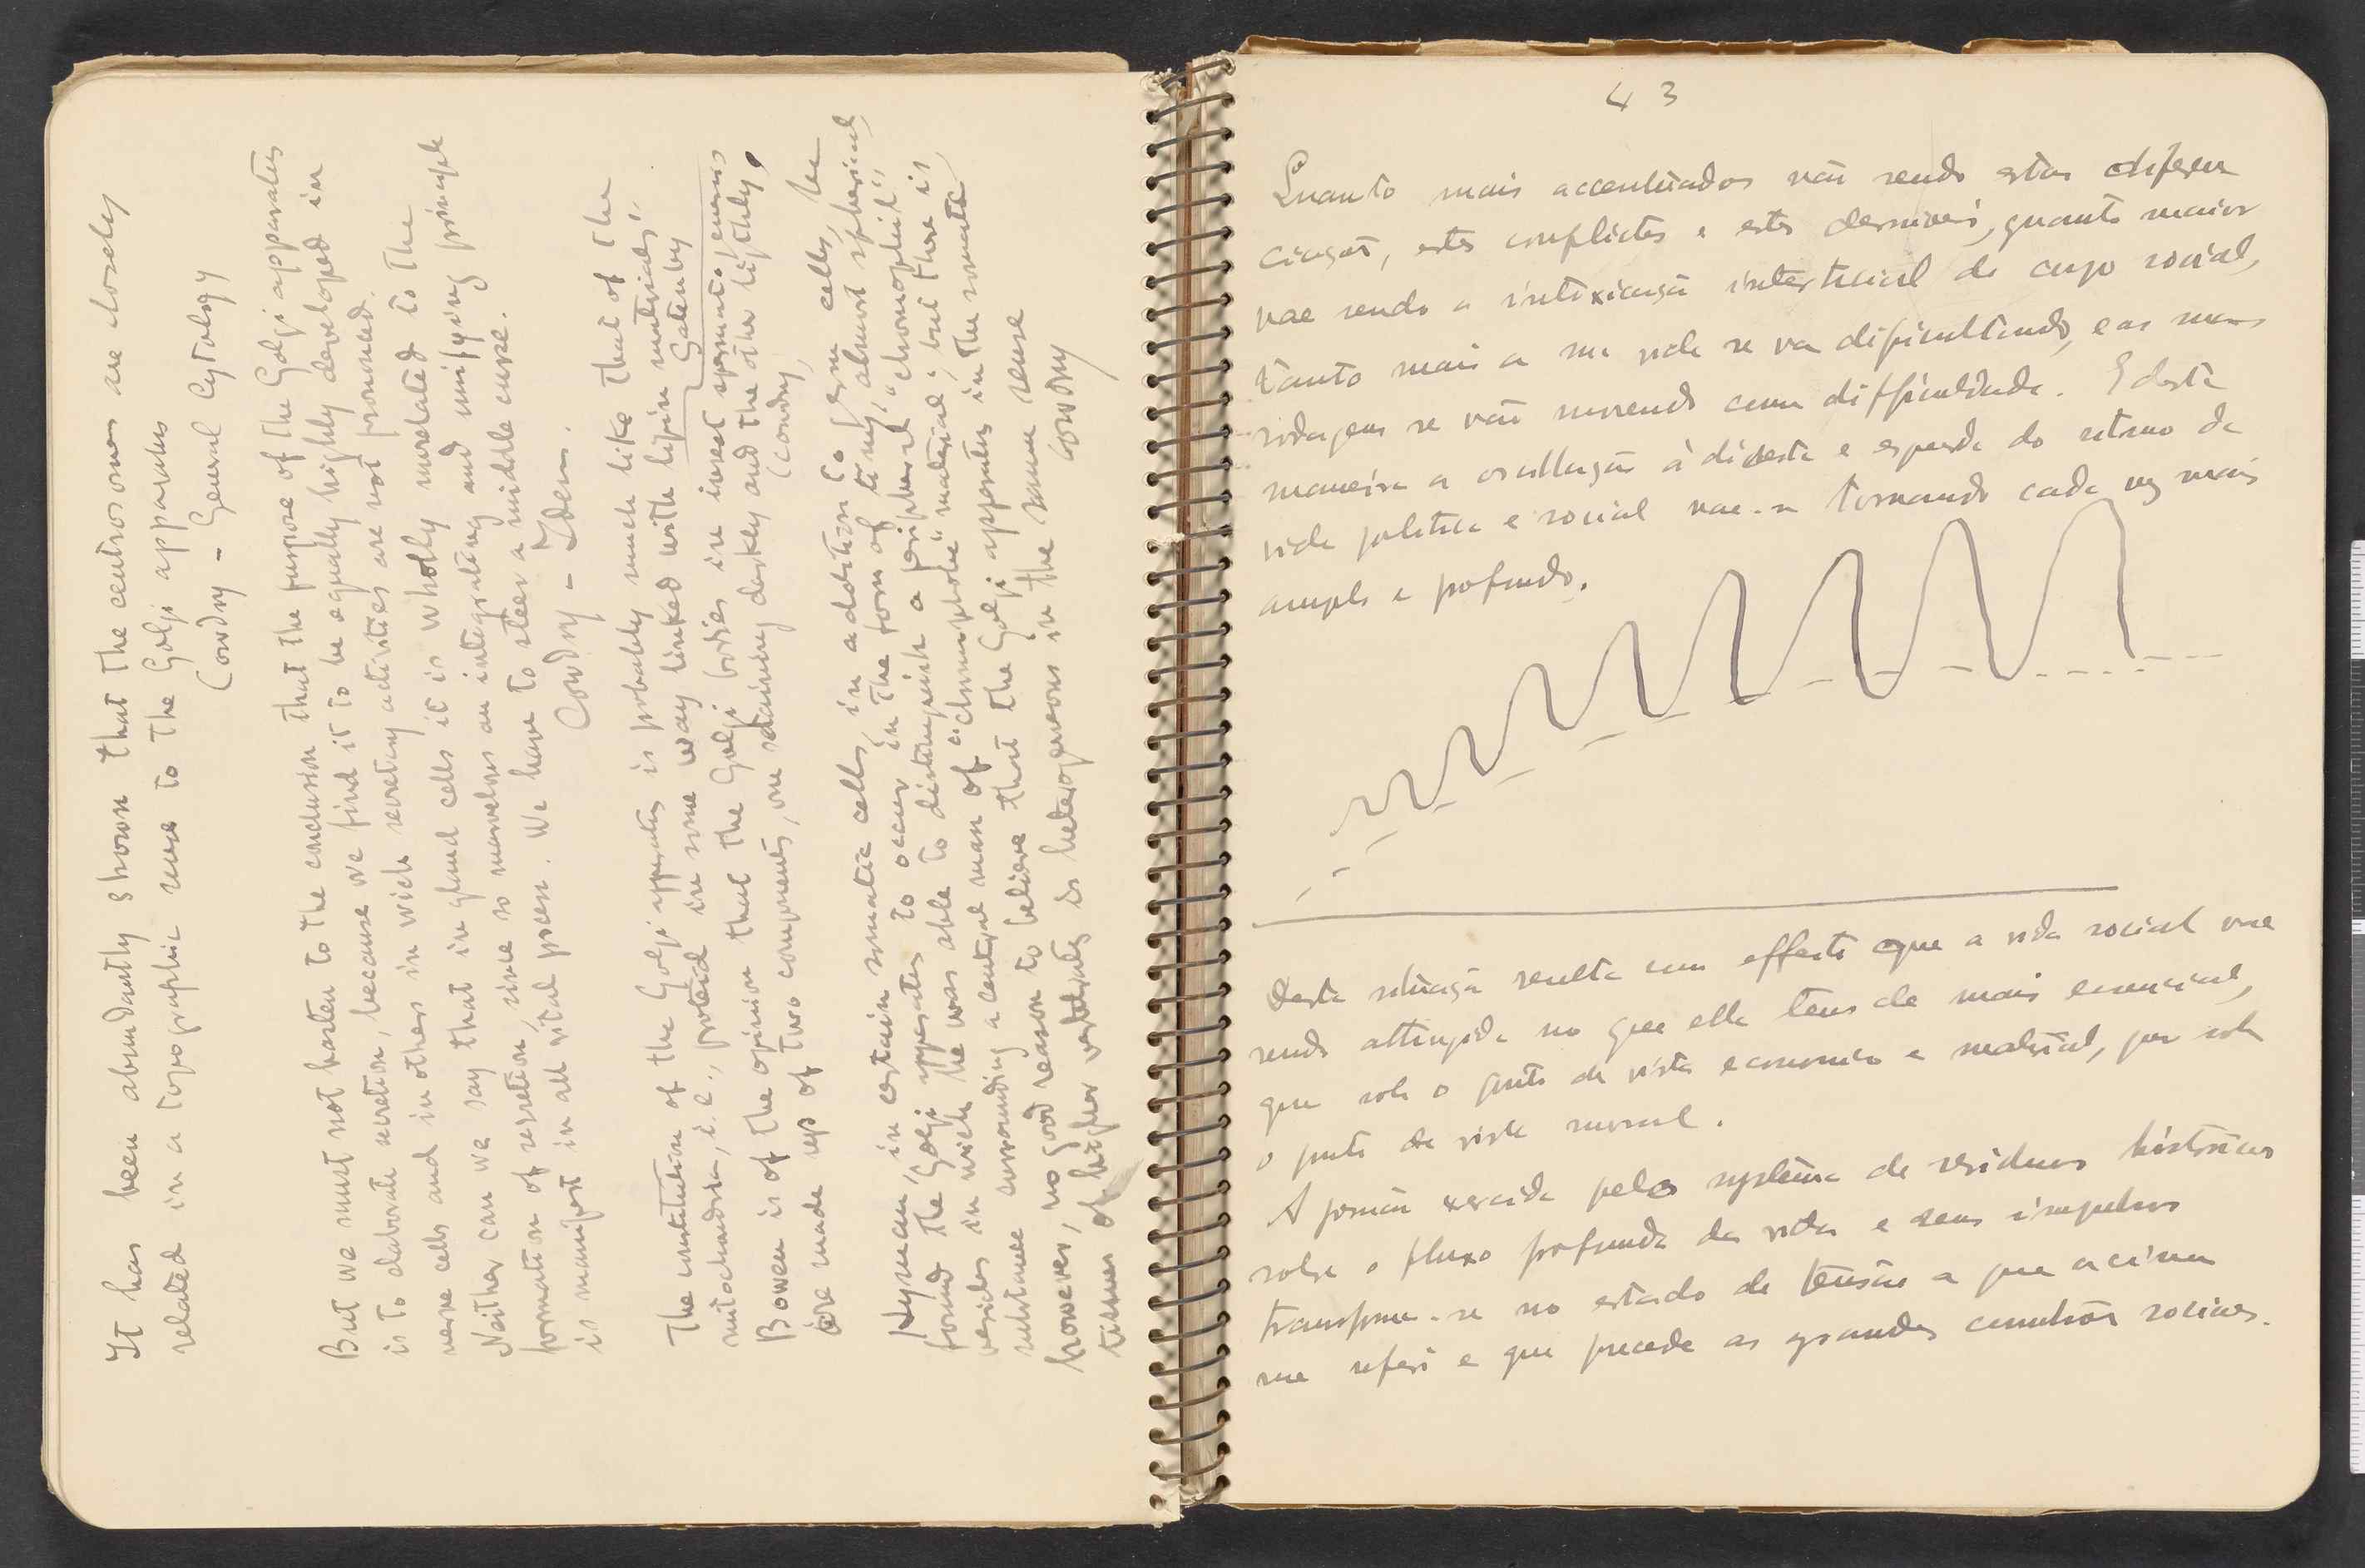 It has been abundantly shown that the centrosomes are closely
related in a topographic sense to the Golgi apparatus
Cowdry - General Cytology
But we must not hasten to the conclusion that the purpose of the Golgi apparatus
is to elaborate secretion, because we find it to be equally highly developed in
nerve cells and in others in wich secretory activities are not pronounced.
Neither can we say that in gland cells it is wholly unrelated to the
formation of secretion, since so marvelous an integrating and unifying principle
is manifest in all vital process. We have to steer a middle curse.
Cowdry - Idem.
The constitution of the Golgi apparatus is probably much like that of the
mitochondria, i.e., proteid in some way linked with lipin materials".
Gatenby
Bowen is of the opinion that the Golgi bodies in insect spermatogenesis
are made up of two components, one staining darkey and the other ligthly,
(Cowdry)
Nyman, in certain somatic cells, in addition to germ cells, he
found the Golgi apparatus to occur in the form of tiny, almost spherical
vesicles in wich he was able to distinguish a peripheral "chromophil"
substance surrounding a central man of "chromophobe" material; but there is,
however, no good reason to believe that the Golgi apparatus in the somatic
tissues of higher vertebrates is heterogeneous in the same sense
Cowdry
43
Quanto mais accentuados vão sendo estas differen
ciaçoes, estes conflictos e estes desniveis, quanto maior
vae sendo a intoxicação intersticial do corpo social,
tanto mais a sua vida se vae dificultando, e as suas
rodagens se vão movendo com difficuldade. E desta
maneira a oscillação á direita e esquerda do ritmo da
vida politica e social vae-se tornando cada vez mais
ampla e profunda.
Desta situação resulta com effeito que a vida social vae
sendo attingida no que ella tem de mais essencial,
quer sob o ponto de vista economico e material, quer sob
o ponto de vista moral.
A pressão exercida pelo systema de residuos historicos
sobre o fluxo profundo da vida e seus impulsos
transforma-se no estado de tensão a que acima
me referi e que precede as grandes comoções sociaes.